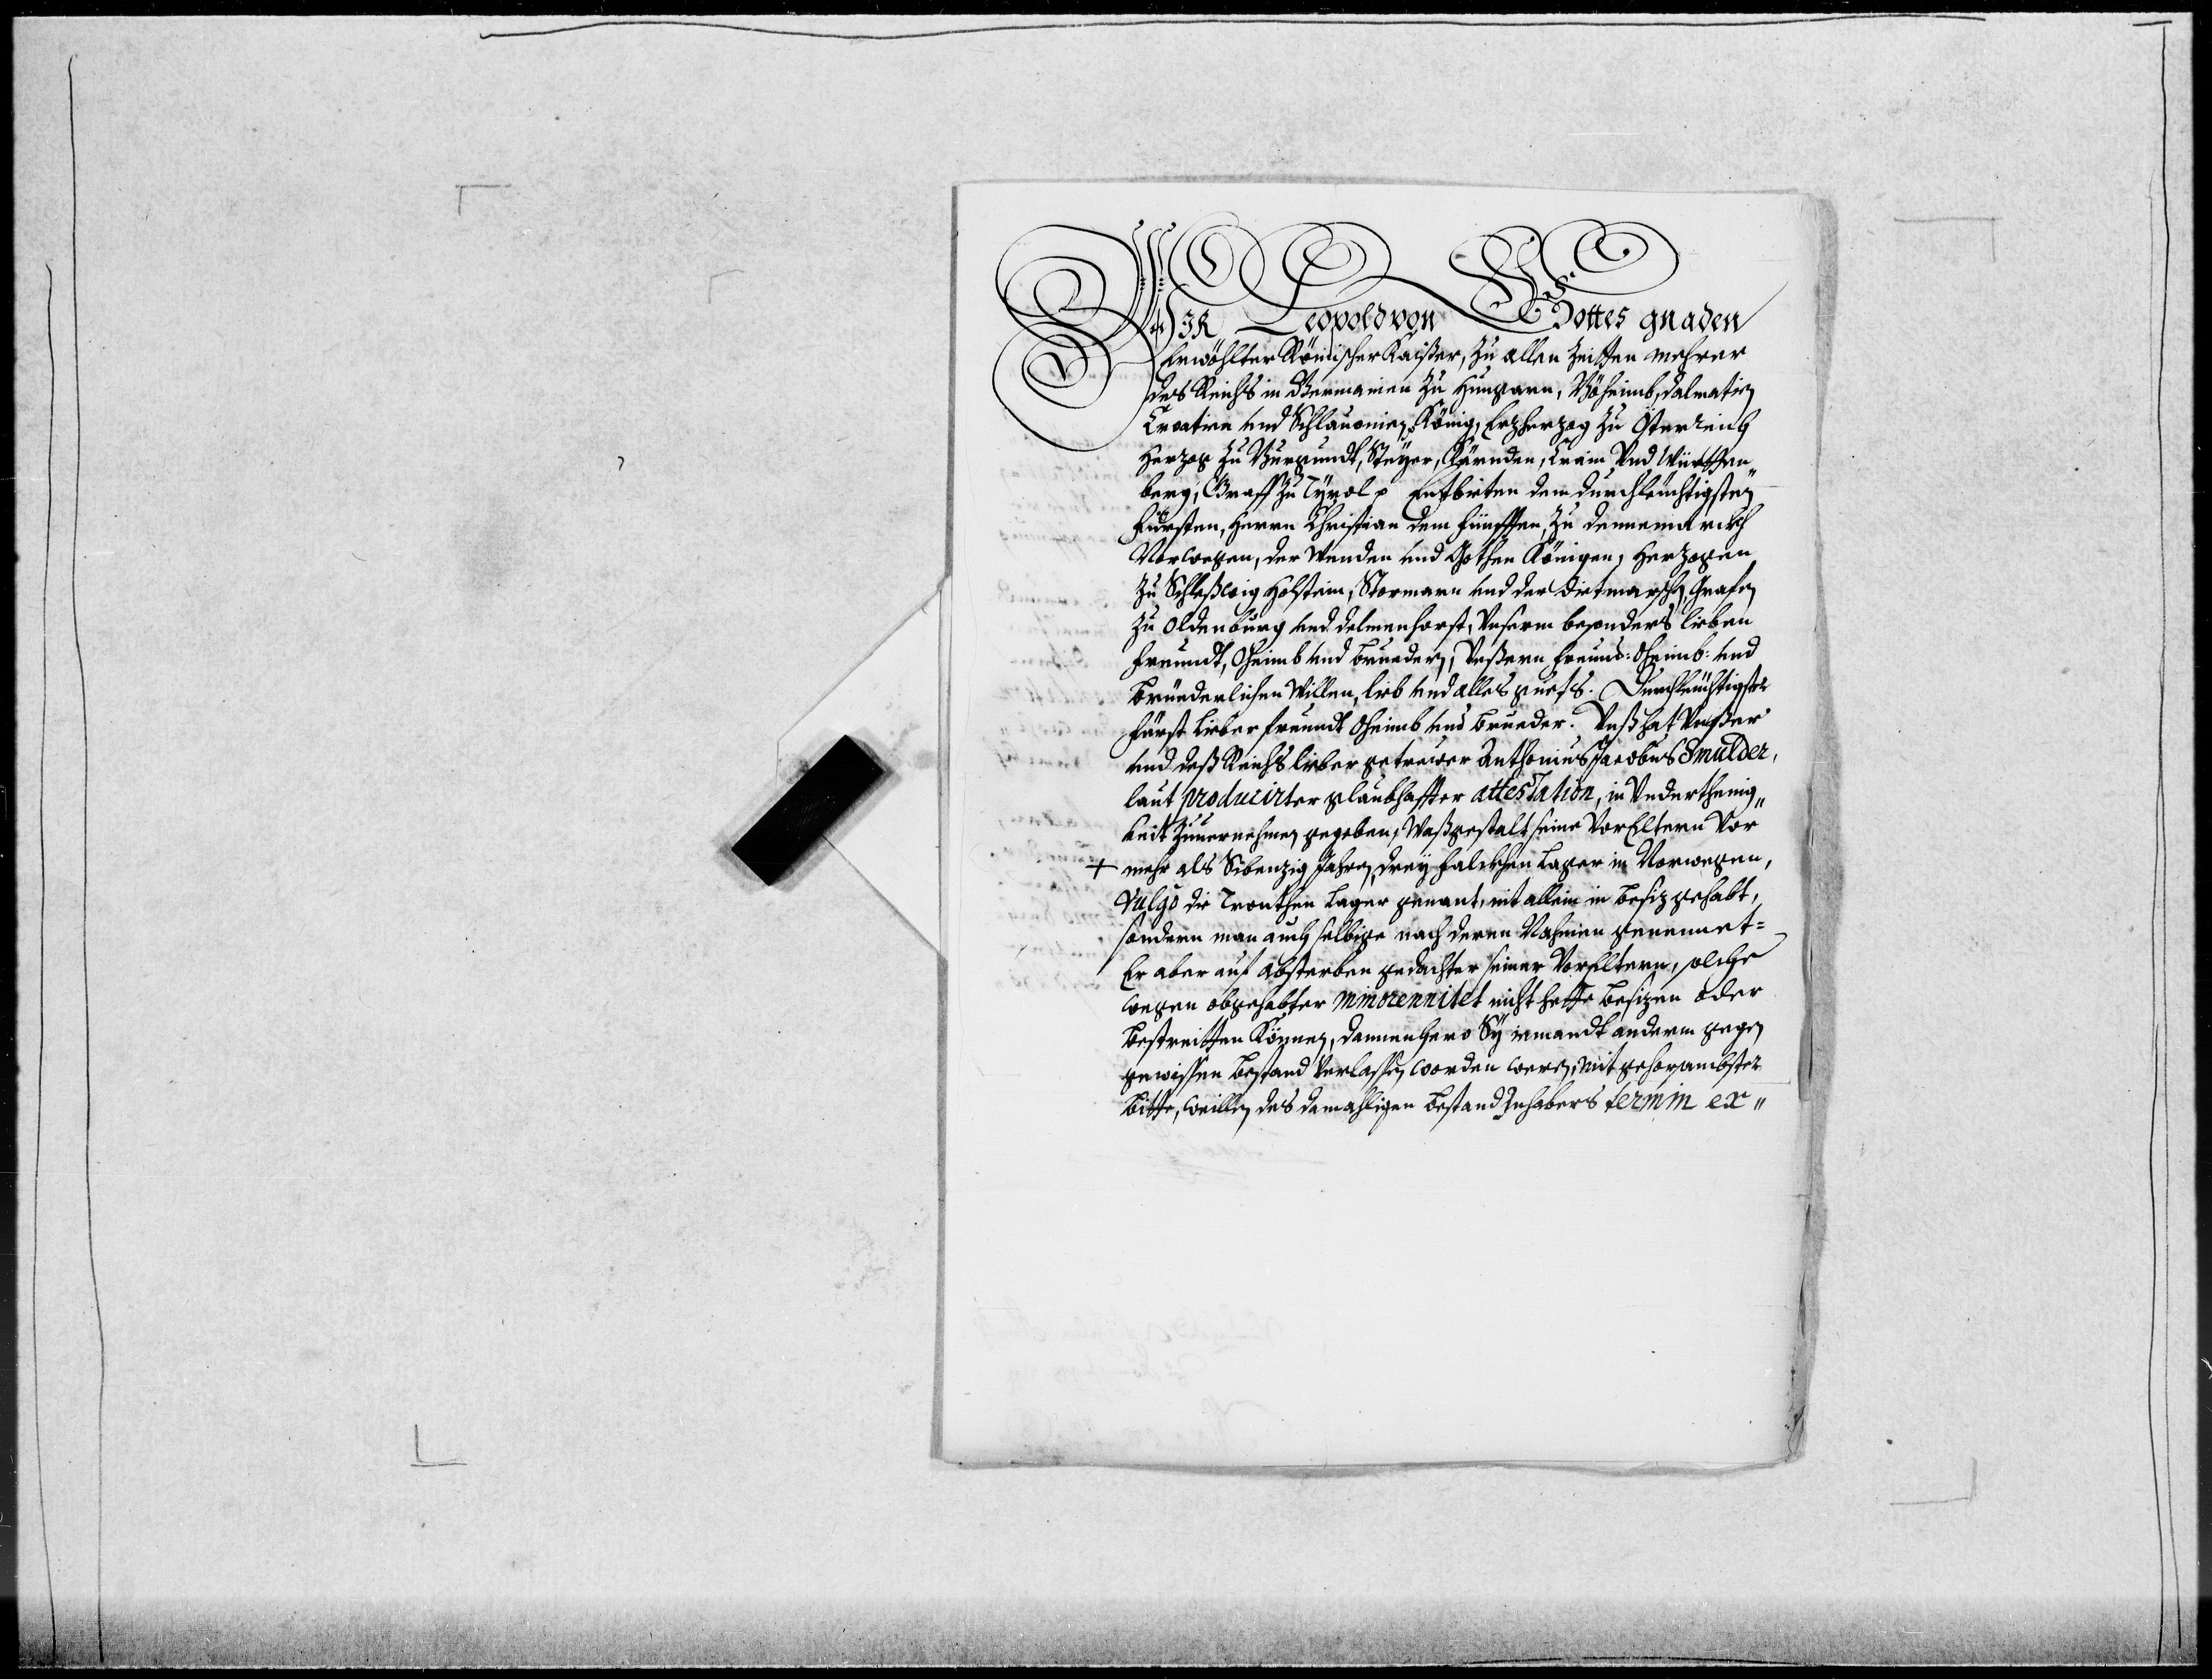 WIR Leopold von Gottes gnaden
Erwöhlter Römischer Kaißer, zu allen Zeitten mehrer
des Reichs in Germanien zu Hungarn, Böheimb, Dalmatien
Croatien und Schlauonien König, Erzherzog zu Österreich
Herzog zu Burgundt, Steyer, Kärnden, Crain Und Württen„
berg, Graff zu Tyrol p Entbieten dem durchleüchtigsten
Fürsten, Herrn Christian dem fünfften, zu Dennemarckh
Norwegen, der Wenden und Gothen Königen, Herzogen
zu Schleßwig Holstein, Stormarn und der Dietmarschen, Grafen
zu Oldenburg und Delmenhorst, Unserm besonders lieben
Freundt, Oheimb und Bruedern, Unßern freund: Oheimb: und
Brüederlichen Willen, lieb und alles guets. Durchleüchtigster
Fürst Lieber freundt Oheimb und Brueder. Unß hat Unßer
und deß Reichs lieber getrewer Anthonius Jacobus Smulder,
laut producirter glaubhaffter attestation, in Undertheinig„
keit zuuernehmen gegeben, Waßgestalt seine VorEltern Vor
+ mehr als Sibenzig Jahren, drey Falckhen Lager in Norwegen,
Vulgo die Tronthen Lager genant, nit allein in Besiz gehabt,
sondern man auch selbige nach deren Nahmen genennet=
Er aber auf Absterben gedachter seiner VorEltern, solche
wegen obgehabter minorennitet nicht hette Besizen oder
Bestreitten Können, dannenhero Sy iemandt anderm gegen
gewissen Bestand Verlassen worden weren, mit gehorsambster
Bitte, weillen des damahligen Bestand Inhabers termin ex„